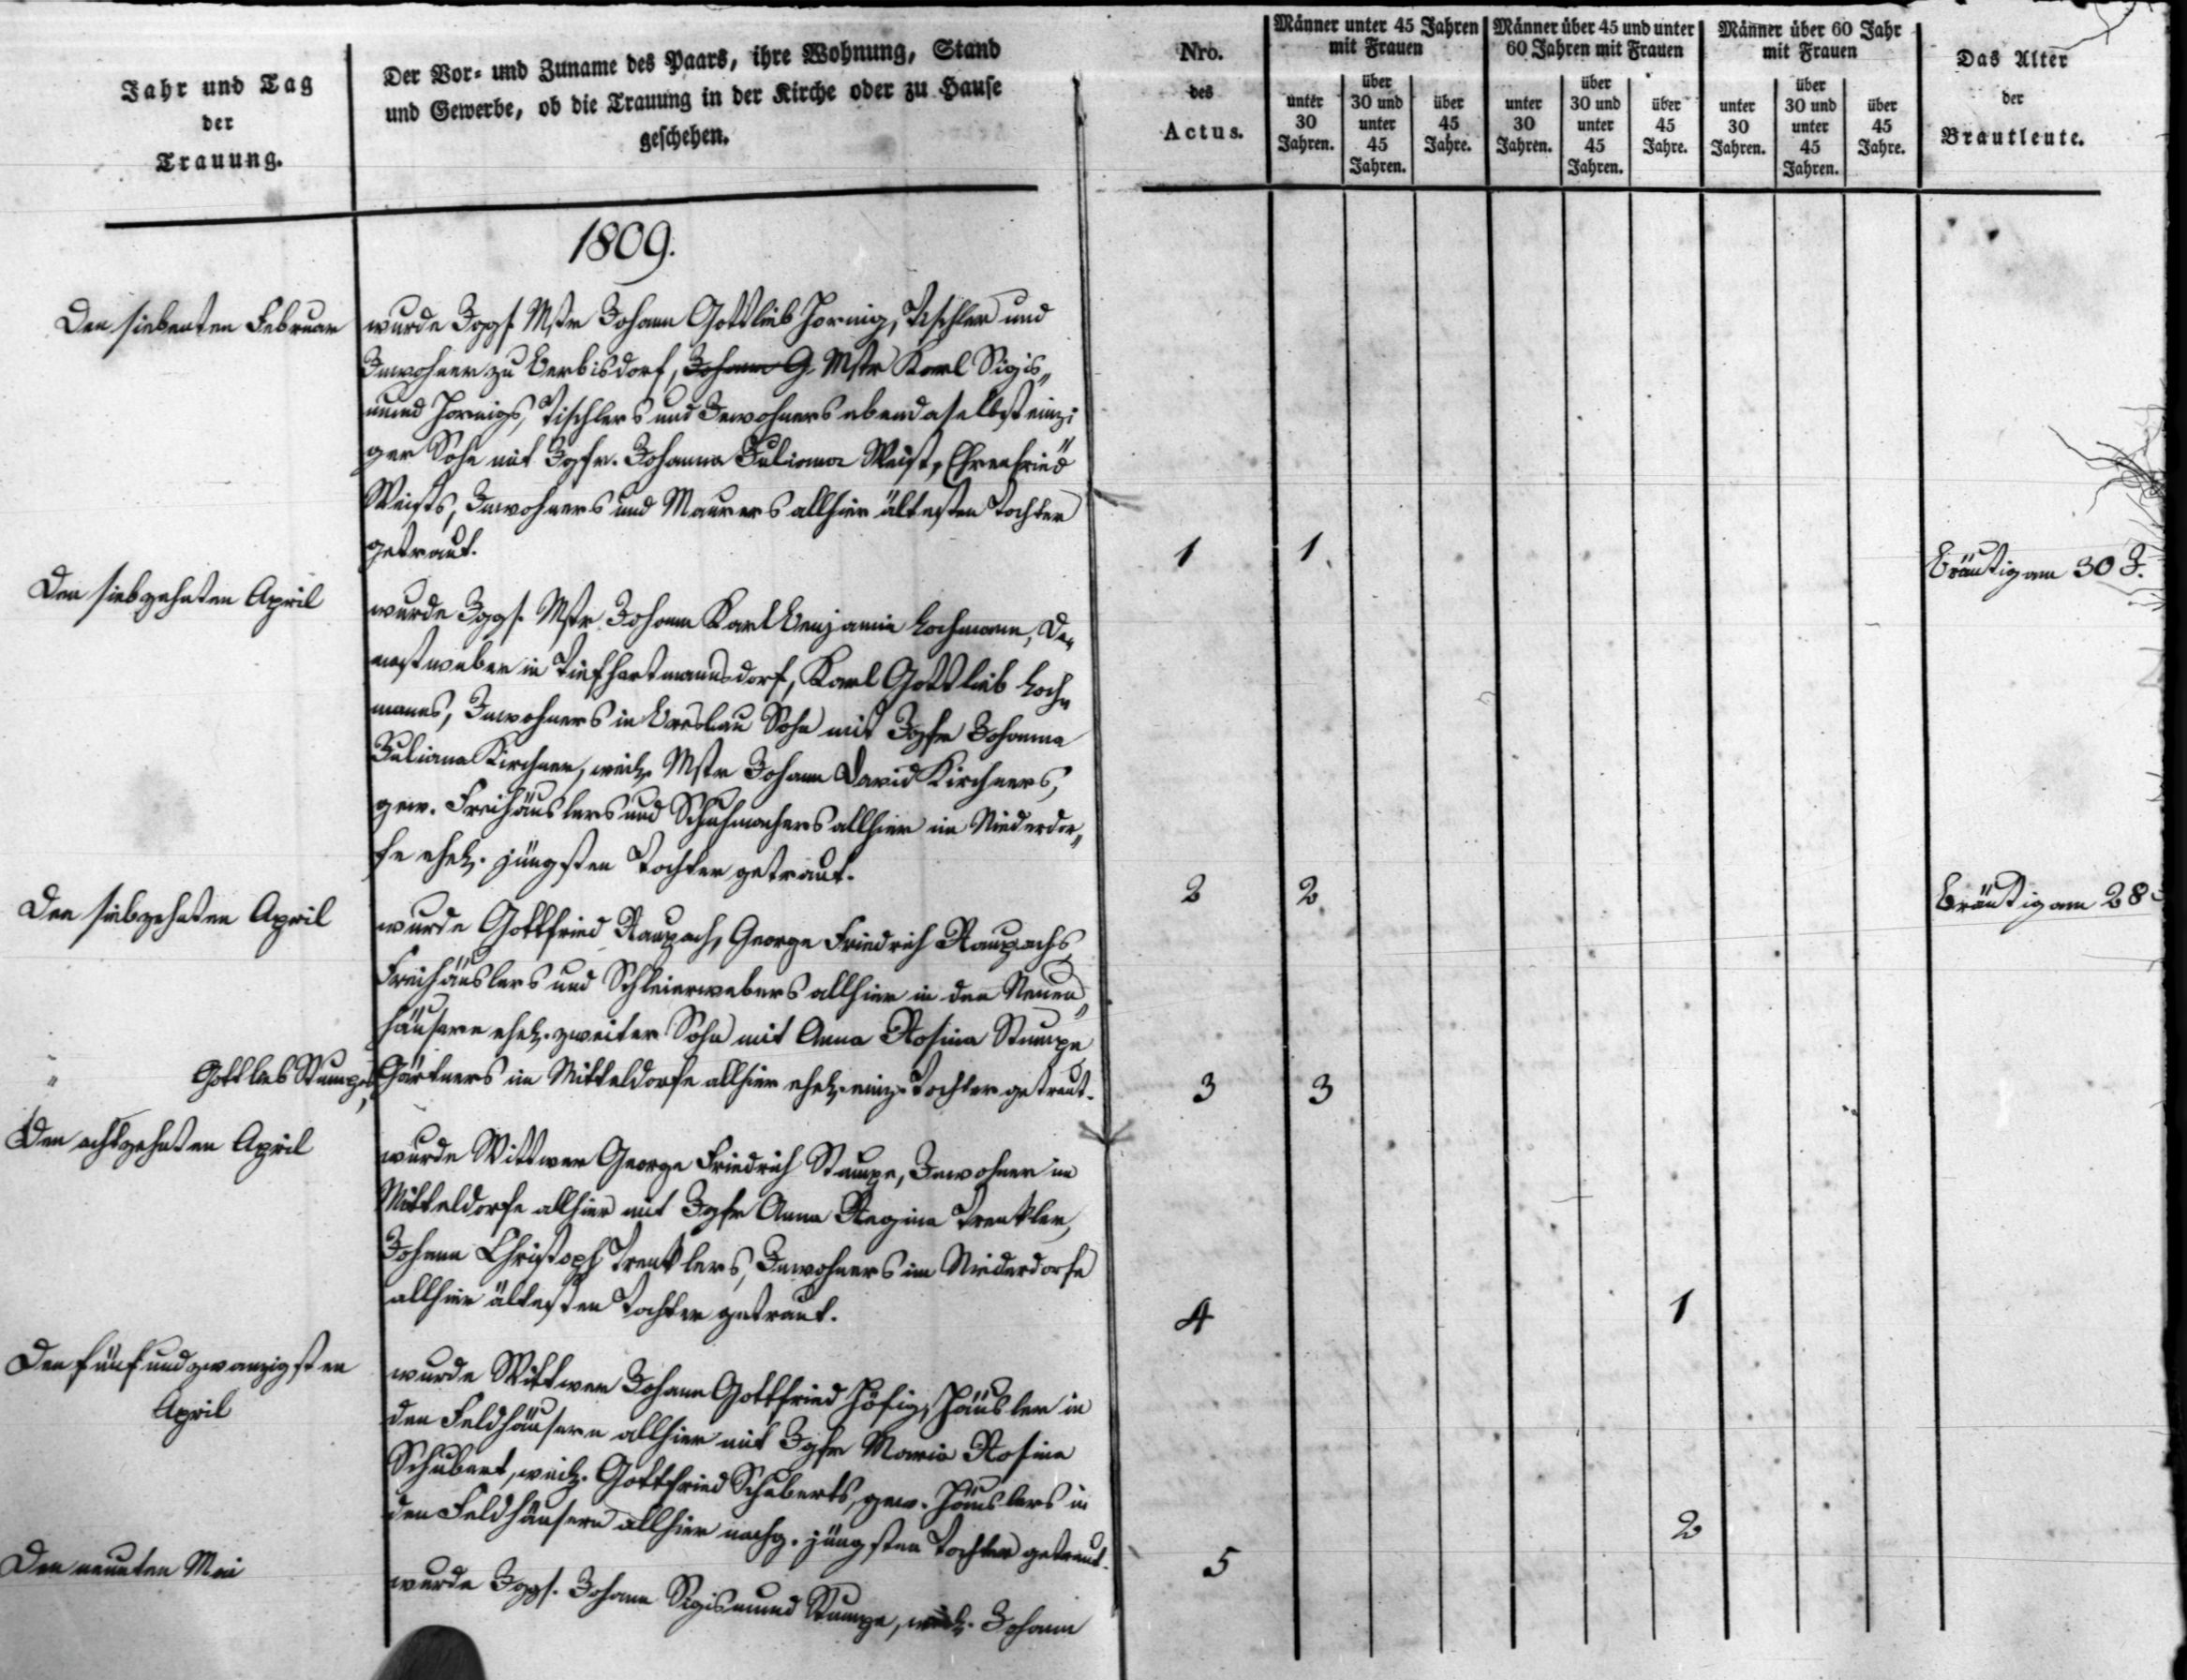 Jahr und Tag
der
Trauung.
Der Vor- und Zuname des Paars, ihre Wohnung, Stand
und Gewerbe, ob die Trauung in der Kirche oder zu Hause
geschehen.
Nro.
des
Actus.
Männer unter 45 Jahren
mit Frauen
unter
30
Jahren.
über
30 und
unter
45
Jahren.
über
45
Jahre.
Männer über 45 und unter
60 Jahren mit Frauen
unter
30
Jahren.
über
30 und
unter
45
Jahren.
über
45
Jahre.
Männer über 60 Jahr
mit Frauen
unter
30
Jahren.
über
30 und
unter
45
Jahren.
über
45
Jahre.
Das Alter
der
Brautleute.
1809.
Den siebenten Februar
wurde Jggs. Mstr Johann Gottlieb Hornig, Tischler und
Inwohner zu Berbisdorf, Johann G Mstr Karl Sigis„
mund Hornigs, Tischlers und Inwohners ebendaselbst einzi
ger Sohn mit Jgfr. Johanna Juliana Weist, Ehrenfried
Weists, Inwohners und Maurers allhier ältesten Tochter
getraut.
1 1. Bräutigam 30 J.
Den siebzehnten April
wurde Jggs. Mstr Johann Karl Benjamin Lochmann, Da„
mastweber in Tiefhartmannsdorf, Karl Gottlieb Loch„
manns, Inwohners in Breslau Sohn mit Jgfr Johanna
Juliana Kirchner, weil. Mstr Johann David Kirchners,
gew. Freihäuslers und Schuhmachers allhier im Niederdor„
fe ehel. jüngsten Tochter getraut.
2 2 Bräutigam 28
Den siebzehnten April
wurde Gottfried Raupach, George Friedrich Raupachs,
Freihäuslers und Schleierwebers allhier in den Neuen„
häusern ehel. zweiter Sohn mit Anna Rosina Stumpe
Gottlieb Stumpes, Gärtners im Mitteldorfe allhier ehel. einz. Tochter getraut.
3 3
Den achtzehnten April
wurde Wittwer George Friedrich Stumpe, Inwohner im
Mitteldorfe allhier mit Jgfr Anna Regina Trenkler,
Johann Christoph Trenklers, Inwohners im Niederdorfe
allhier ältesten Tochter getraut.
4 1
Den fünfundzwanzigsten
April
wurde Wittwer Johann Gottfried Höfig, Häusler in
den Feldhäusern allhier mit Jgfr Maria Rosina
Schubert, weil. Gottfried Schuberts, gew. Häuslers in
den Feldhäusern allhier nachg. jüngsten Tochter getraut.
5 2
Den neunten Mai
wurde Jggs. Johann Sigismund Stumpe, weil. Johann